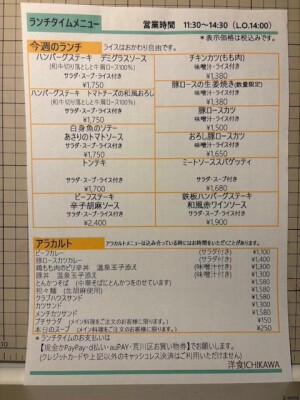 ランチタイムメニュー
営業時間 11:30～14:30 (L.O.14:00)
＊表示価格は税込みです。
今週のランチ ライスはおかわり自由です。
ハンバーグステーキ デミグラスソース
(和牛切り落としと牛肩ロース100%)
サラダ・スープ・ライス付き
¥1,750
チキンカツ(もも肉)
味噌汁・ライス付き
¥1,380
ハンバーグステーキ トマトチーズの和風おろし
(和牛切り落としと牛肩ロース100%)
サラダ・スープ・ライス付き
¥1,750
豚ロースの生姜焼き(数量限定)
味噌汁・ライス付き
¥1,380
白身魚のソテー
あさりのトマトソース
サラダ・スープ・ライス付き
¥1,750
豚ロースカツ
味噌汁・ライス付き
¥1,500
おろし豚ロースカツ
味噌汁・ライス付き
¥1,650
トンテキ
サラダ・スープ・ライス付き
¥1,700
ミートソーススパゲッティ
サラダ・スープ・ライス付き
¥1,680
ビーフステーキ
辛子胡麻ソース
サラダ・スープ・ライス付き
¥2,400
鉄板ハンバーグステーキ
和風赤ワインソース
サラダ・スープ・ライス付き
¥1,900
アラカルト アラカルトメニューは込み合っている時にはお時間をいただくことがあります。
ビーフカレー (サラダ付き) ¥1,100
豚ロースカツカレー (サラダ付き) ¥1,400
鶏もも肉のピリ辛丼 温泉玉子添え (味噌汁付き) ¥1,300
豚丼 温泉玉子添え (味噌汁付き)
とんかつそば (中華そばにとんかつをのせています)
担々麺 (生胡麻使用)
クラブハウスサンド
カツサンド
メンチカツサンド ¥1,580
プチサラダ (メイン料理をご注文のお客様に限ります。) ¥150
本日のスープ (メイン料理をご注文のお客様に限ります。) ¥250
＊ランチタイムのお支払いは
【現金かPayPay・d払い・auPAY・荒川区お買い物券】でお願いします。
(クレジットカードや上記以外のキャッシュレス決済はご利用いただけません)
洋食ICHIKAWA